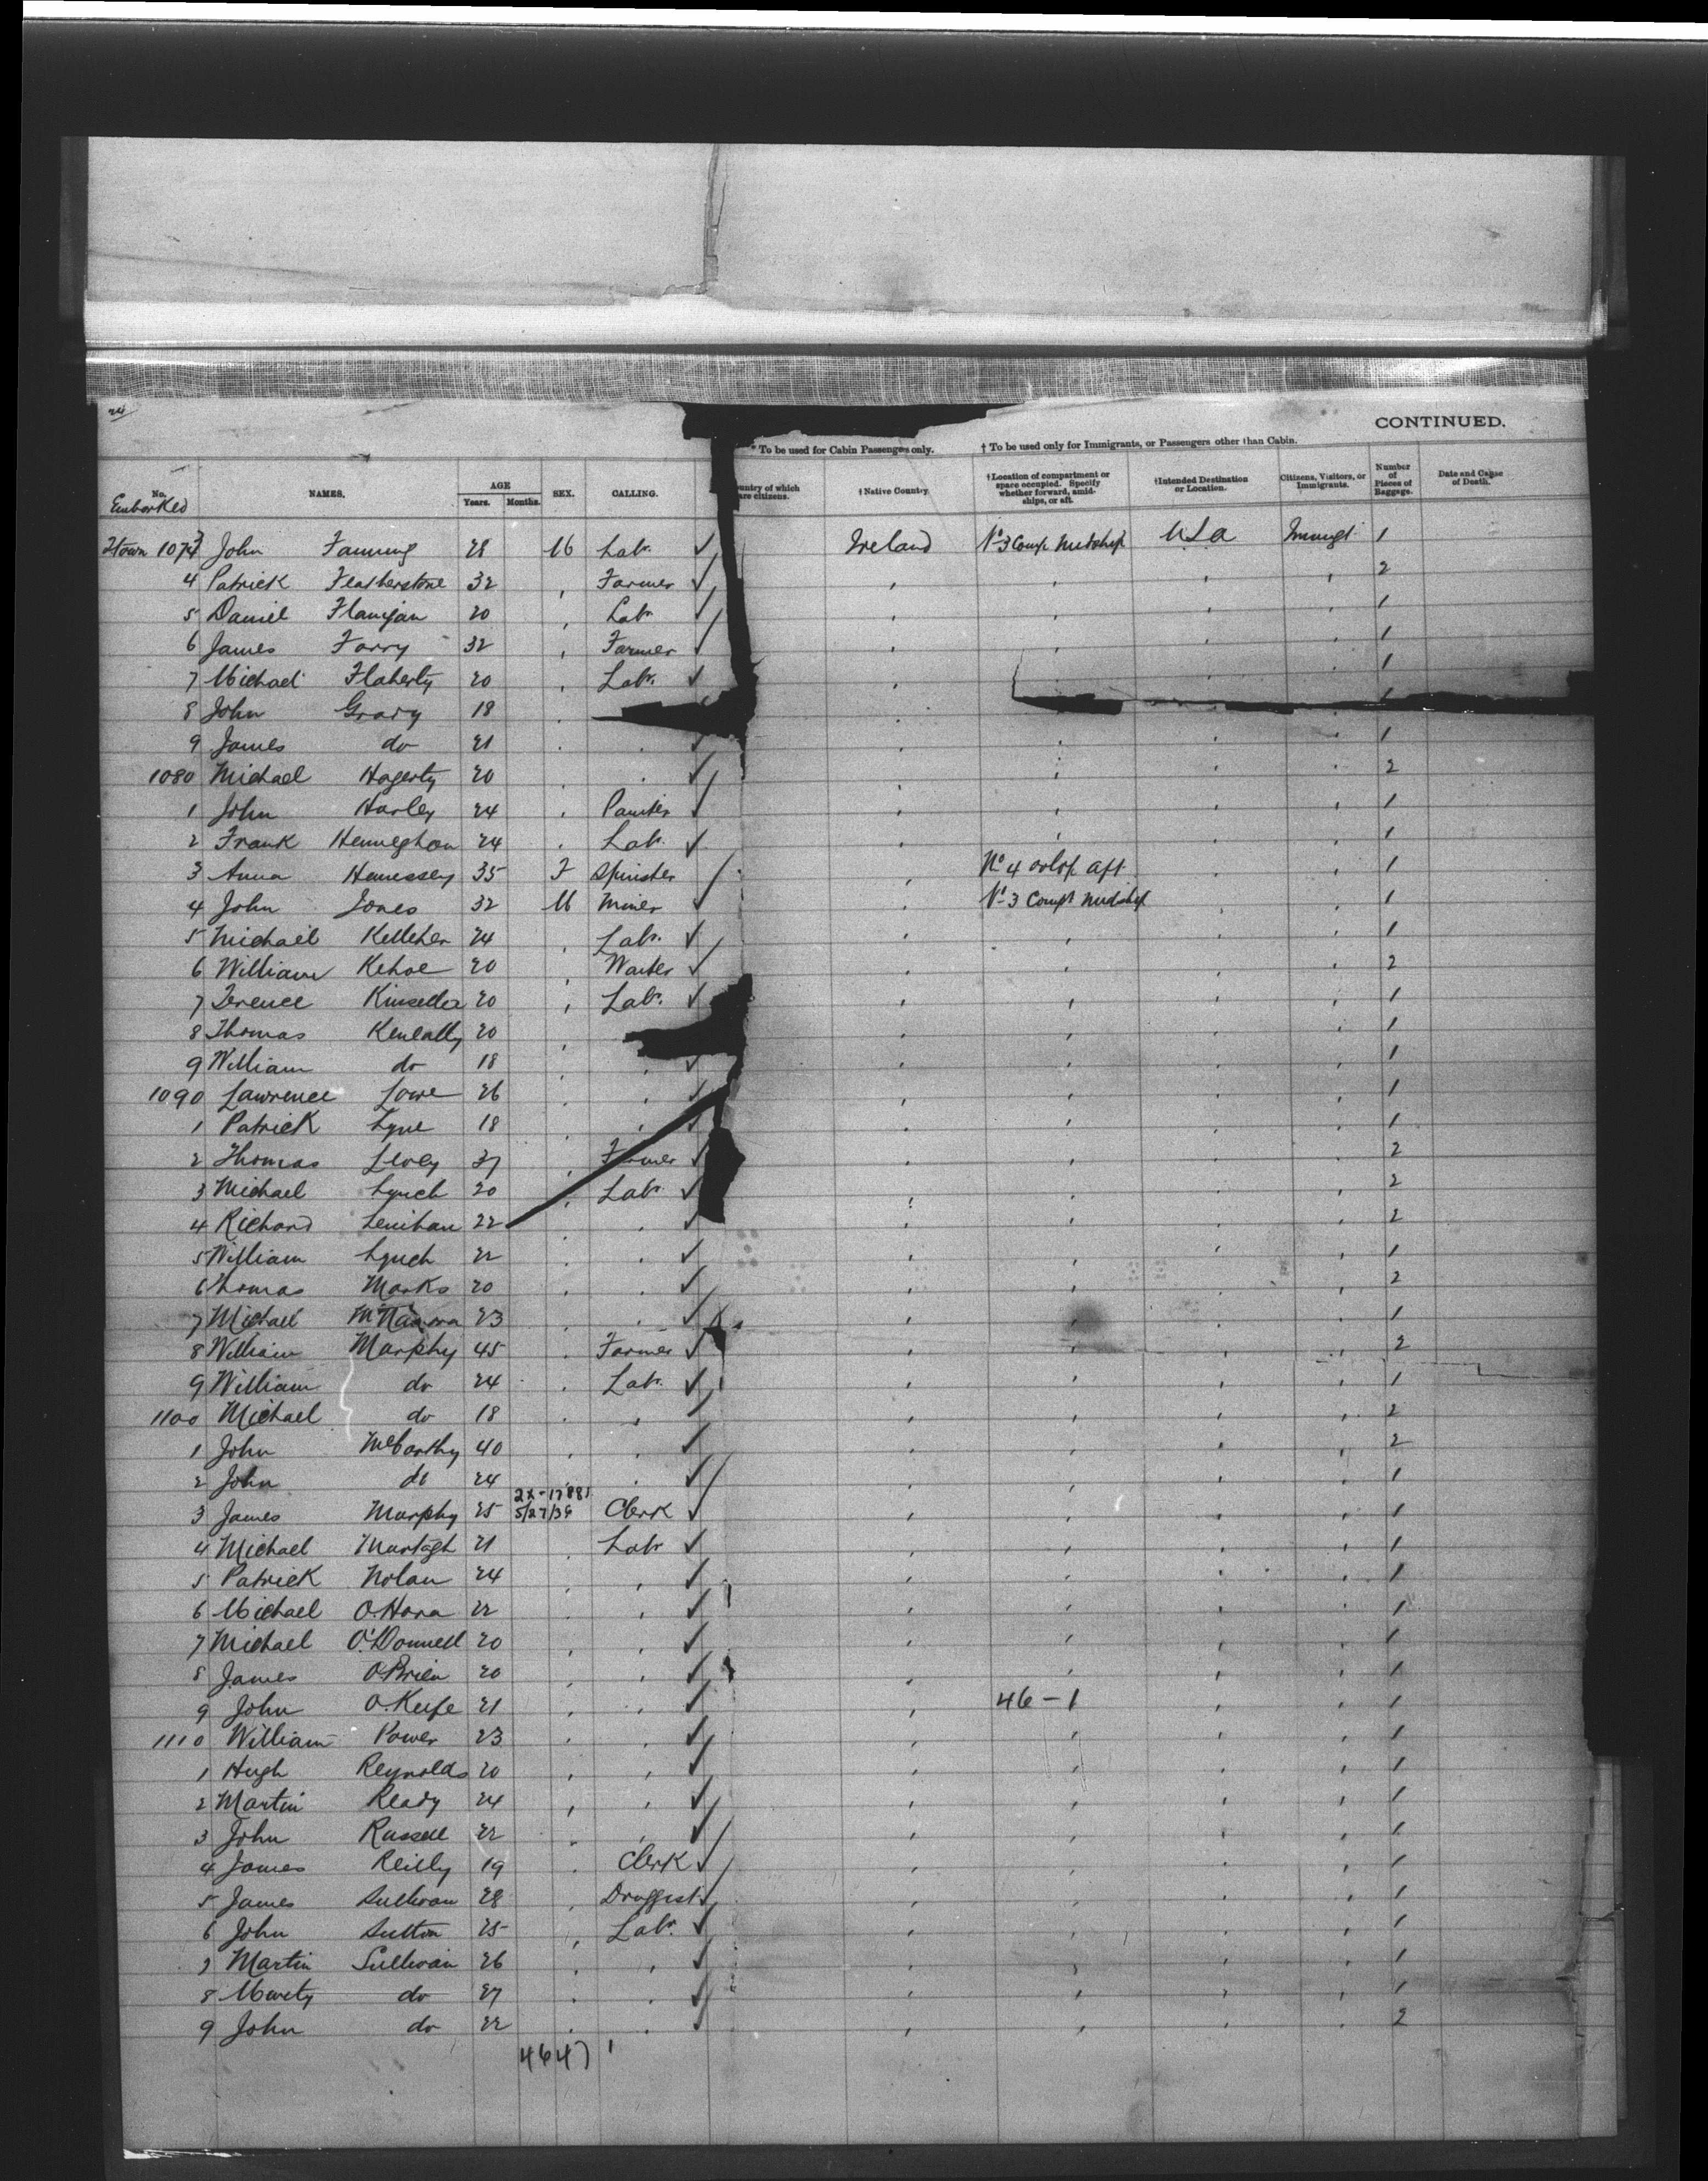 24/
CONTINUED.
* To be used for Cabin Passengers only. † To be used only for Immigrants, or Passengers other than Cabin.
No. NAMES. AGE Years. Months. SEX. CALLING. Country of which are citizens. †Native Country †Location of compartment or space occupied. Specify whether forward, amidships, or aft. †Intended Destination or Location. Citizens, Visitors, or Immigrants. Number of Pieces of Baggage. Date and Cause of Death.
Embarked
1073 John Fanning 28 M Labr. ✓ Ireland No 3 Comp Midship USA Immigt 1
4 Patrick Featherstone 32 " Farmer ✓ " " " " 2
5 Daniel Flanigan 20 " Labr ✓ " " " " 1
6 James Forry 32 " Farmer ✓ " " " " 1
7 Michael Flaherty 20 " Labr. ✓ " " " 1
8 John Grady 18 " " "
9 James do 21 " " ✓ " " " " 1
1080 Michael Hagerty 20 " ✓ " " " " 2
1 John Harley 24 " Painter ✓ " " " " 1
2 Frank Henneghan 24 " Labr. ✓ " " " " 1
3 Anna Henessey 35 F Spinster ✓ " No 4 orlop aft " " 1
4 John Jones 32 M Miner ✓ " No 3 Compt Midship " " 1
5 Michael Kelleher 24 " Labr. ✓ " " " " 1
6 William Kehoe 20 " Waiter ✓ " " " " 2
7 Terence Kinsella 20 " Labr. ✓ " " " " 1
8 Thomas Keneally 20 " " " " " 1
9 William do 18 " " ✓ " " " " 1
1090 Lawrence Lowe 26 " " ✓ " " " " 1
1 Patrick Lyne 18 " " ✓ " " " " 1
2 Thomas 37 " Farmer ✓ " " " " 2
3 Michael Lynch 20 " Labr ✓ " " " " 2
4 Richard Lenihan 22 " ✓ " " " " 2
5 William Lynch 22 " " ✓ " " " " 1
6 Thomas Marks 20 " " ✓ " " " " 2
7 Michael McNamara 23 " " ✓ " " " " 1
8 William Murphy 45 " Farmer ✓ " " " " 2
9 William do 24 " Labr. ✓ " " " " 1
1100 Michael do 18 " " ✓ " " " " 2
1 John McCarthy 40 " " ✓ " " " " 2
2 John do 24 " ✓ " " " " 1
2x-17881
3 James Murphy 25 5/27/36 Clerk ✓ " " " " 1
4 Michael Murtagh 21 " Labr ✓ " " " " 1
5 Patrick Nolan 24 " " ✓ " " " " 1
6 Michael O'Hara 22 " " ✓ " " " " 1
7 Michael O'Donnell 20 " " ✓ " " " " 1
8 James O'Brien 20 " " ✓ " " " " 1
9 John O'Keefe 21 " " ✓ " 46-1 " " 1
1110 William Power 23 " " ✓ " " " " 1
1 Hugh Reynolds 20 " " ✓ " " " " 1
2 Martin Ready 24 " " ✓ " " " " 1
3 John Russell 22 " " ✓ " " " " 1
4 James Reilly 19 " Clerk ✓ " " " " 1
5 James Sullivan 28 " Druggist ✓ " " " " 1
6 John Sutton 25 " Labr. ✓ " " " " 1
7 Martin Sullivan 26 " " ✓ " " " " 1
8 do 27 " " ✓ " " " " 1
9 John do 22 " " ✓ " " " " 2
4647 1